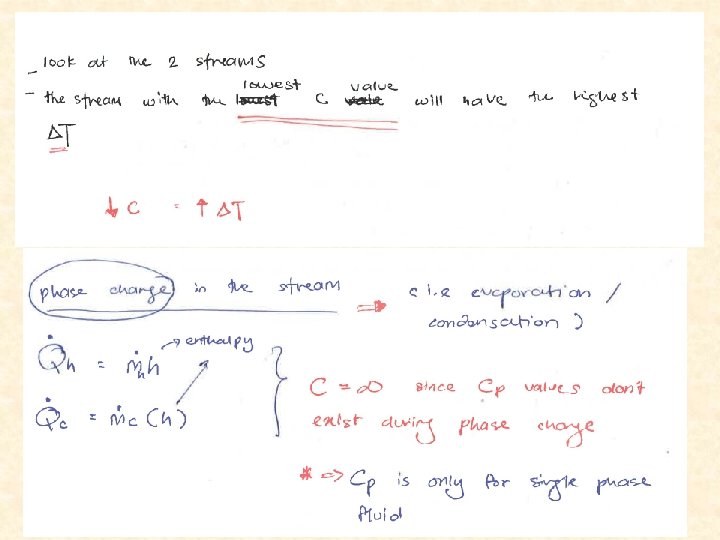 - look at the 2 streams
- the stream with the lowest C value will have the highest
ΔT
↓ C = ↑ ΔT
phase change in the stream ⇒ c i.e evaporation /
condensation )
→ enthalpy
Q̇h = ṁh h
Q̇c = ṁc (h)
C = ∞ since Cp values don't
exist during phase change
* ⇒ Cp is only for single phase
fluid